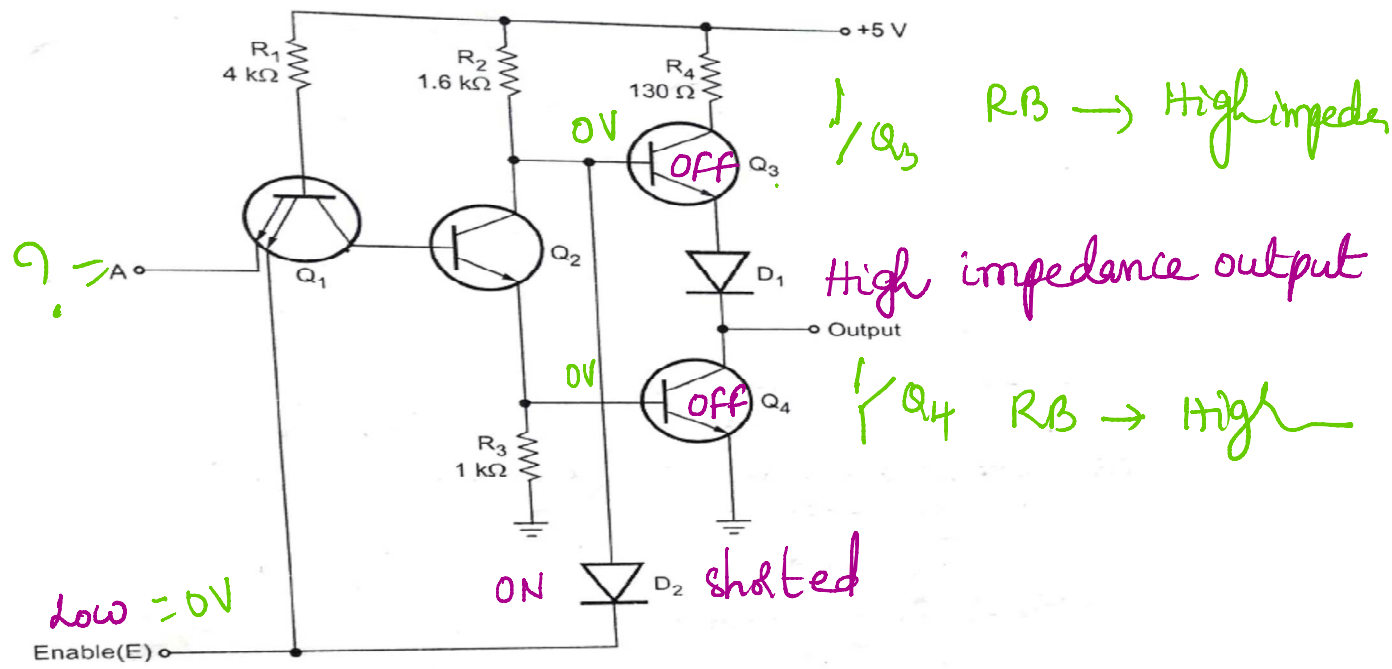 +5 V
R1
4 kΩ
R2
1.6 kΩ
R4
130 Ω
0V
OFF
Q3
1/Q3
RB → High impede
? = A
Q1
Q2
D1
High impedance output
Output
0V
OFF
Q4
1/Q4 RB → High
R3
1 kΩ
ON
D2
shorted
Low = 0V
Enable(E)